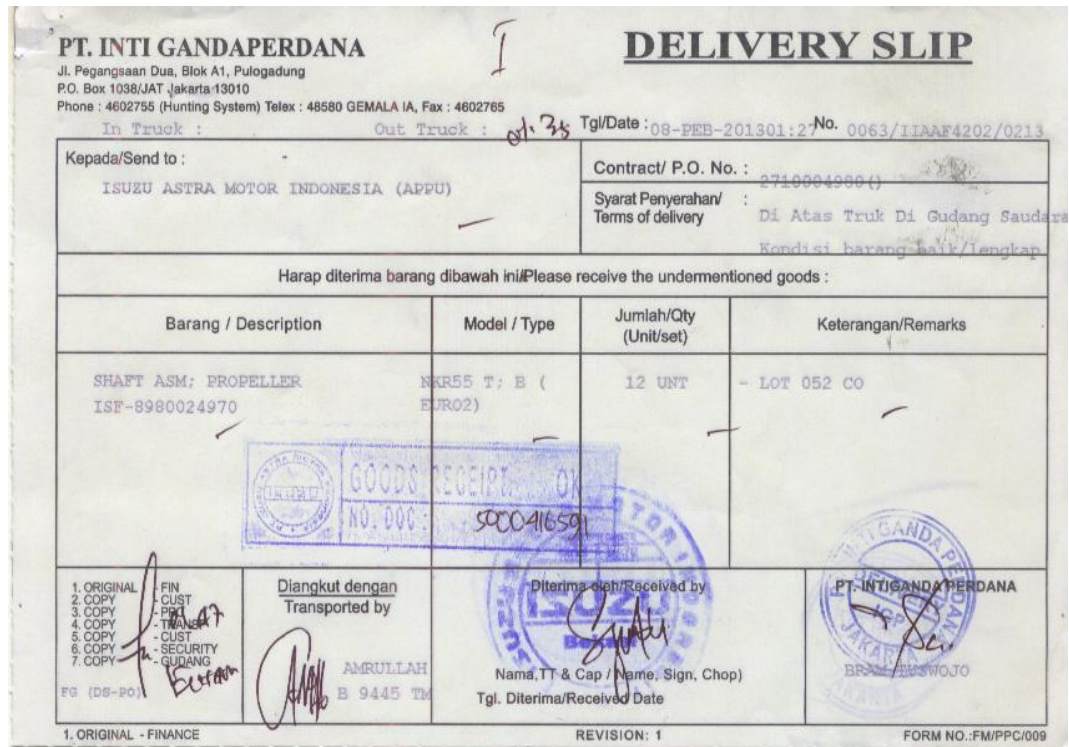 PT. INTI GANDAPERDANA
DELIVERY SLIP
Jl. Pegangsaan Dua, Blok A1, Pulogadung
P.O. Box 1038/JAT Jakarta 13010
Phone : 4602755 (Hunting System) Telex : 48580 GEMALA IA, Fax : 4602765
In Truck : Out Truck : Tgl/Date : 08-PEB-201301:27 No. 0063/IIAAF4202/0213
Kepada/Send to :
ISUZU ASTRA MOTOR INDONESIA (APPU)
Contract/ P.O. No. :
2710004980()
Syarat Penyerahan/ :
Terms of delivery
Di Atas Truk Di Gudang Saudara
Kondisi barang baik/lengkap
Harap diterima barang dibawah ini/Please receive the undermentioned goods :
Barang / Description Model / Type Jumlah/Qty (Unit/set) Keterangan/Remarks
SHAFT ASM; PROPELLER NKR55 T; B ( 12 UNT - LOT 052 CO
ISF-8980024970 EURO2)
GOODS RECEIPT OK
NO. DOC : 5000416591
1. ORIGINAL - FIN
2. COPY - CUST
3. COPY
4. COPY
5. COPY - CUST
6. COPY - SECURITY
7. COPY - GUDANG
FG (DS-PO)
Diangkut dengan
Transported by
AMRULLAH
B 9445 TM
Diterima oleh/Received by
ISUZU
Bekasi
Nama,TT & Cap / Name, Sign, Chop)
Tgl. Diterima/Received Date
PT. INTI GANDA PERDANA
JAKARTA
BRAM
1. ORIGINAL - FINANCE REVISION: 1 FORM NO.:FM/PPC/009